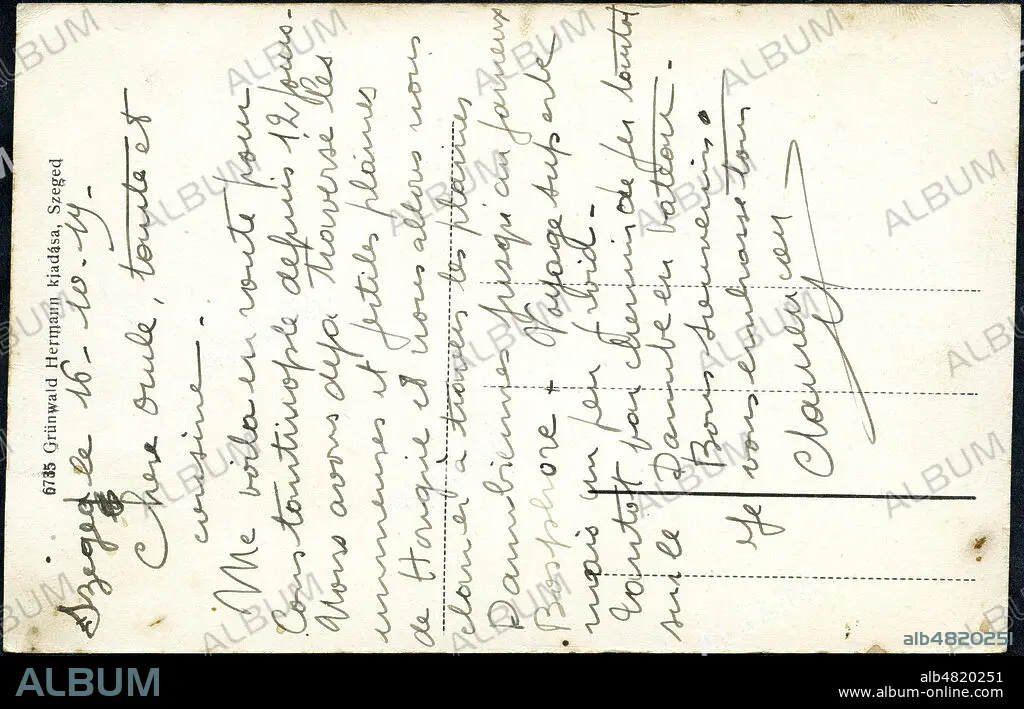 6735 Grünwald Hermann kiadása, Szeged
Szeged le 16-10-19-
Chere oncle, tante et
cousine -
Me voila en route pour
Constantinople depuis 12 jours -
Nous avons deja traversé les
immenses et fertiles plaines
de Hongrie et nous allons nous
a travers les plaines
Danubiennes jusqu'au fameux
Bosphore - Voyage superbe
mais un peu froid -
Tantot par chemin de fer tantot
sur le Danube en bateau -
Bons souvenirs.
Je vous embrasse tous
ALBUM
alb4820251
alb4820251
www.album-online.com